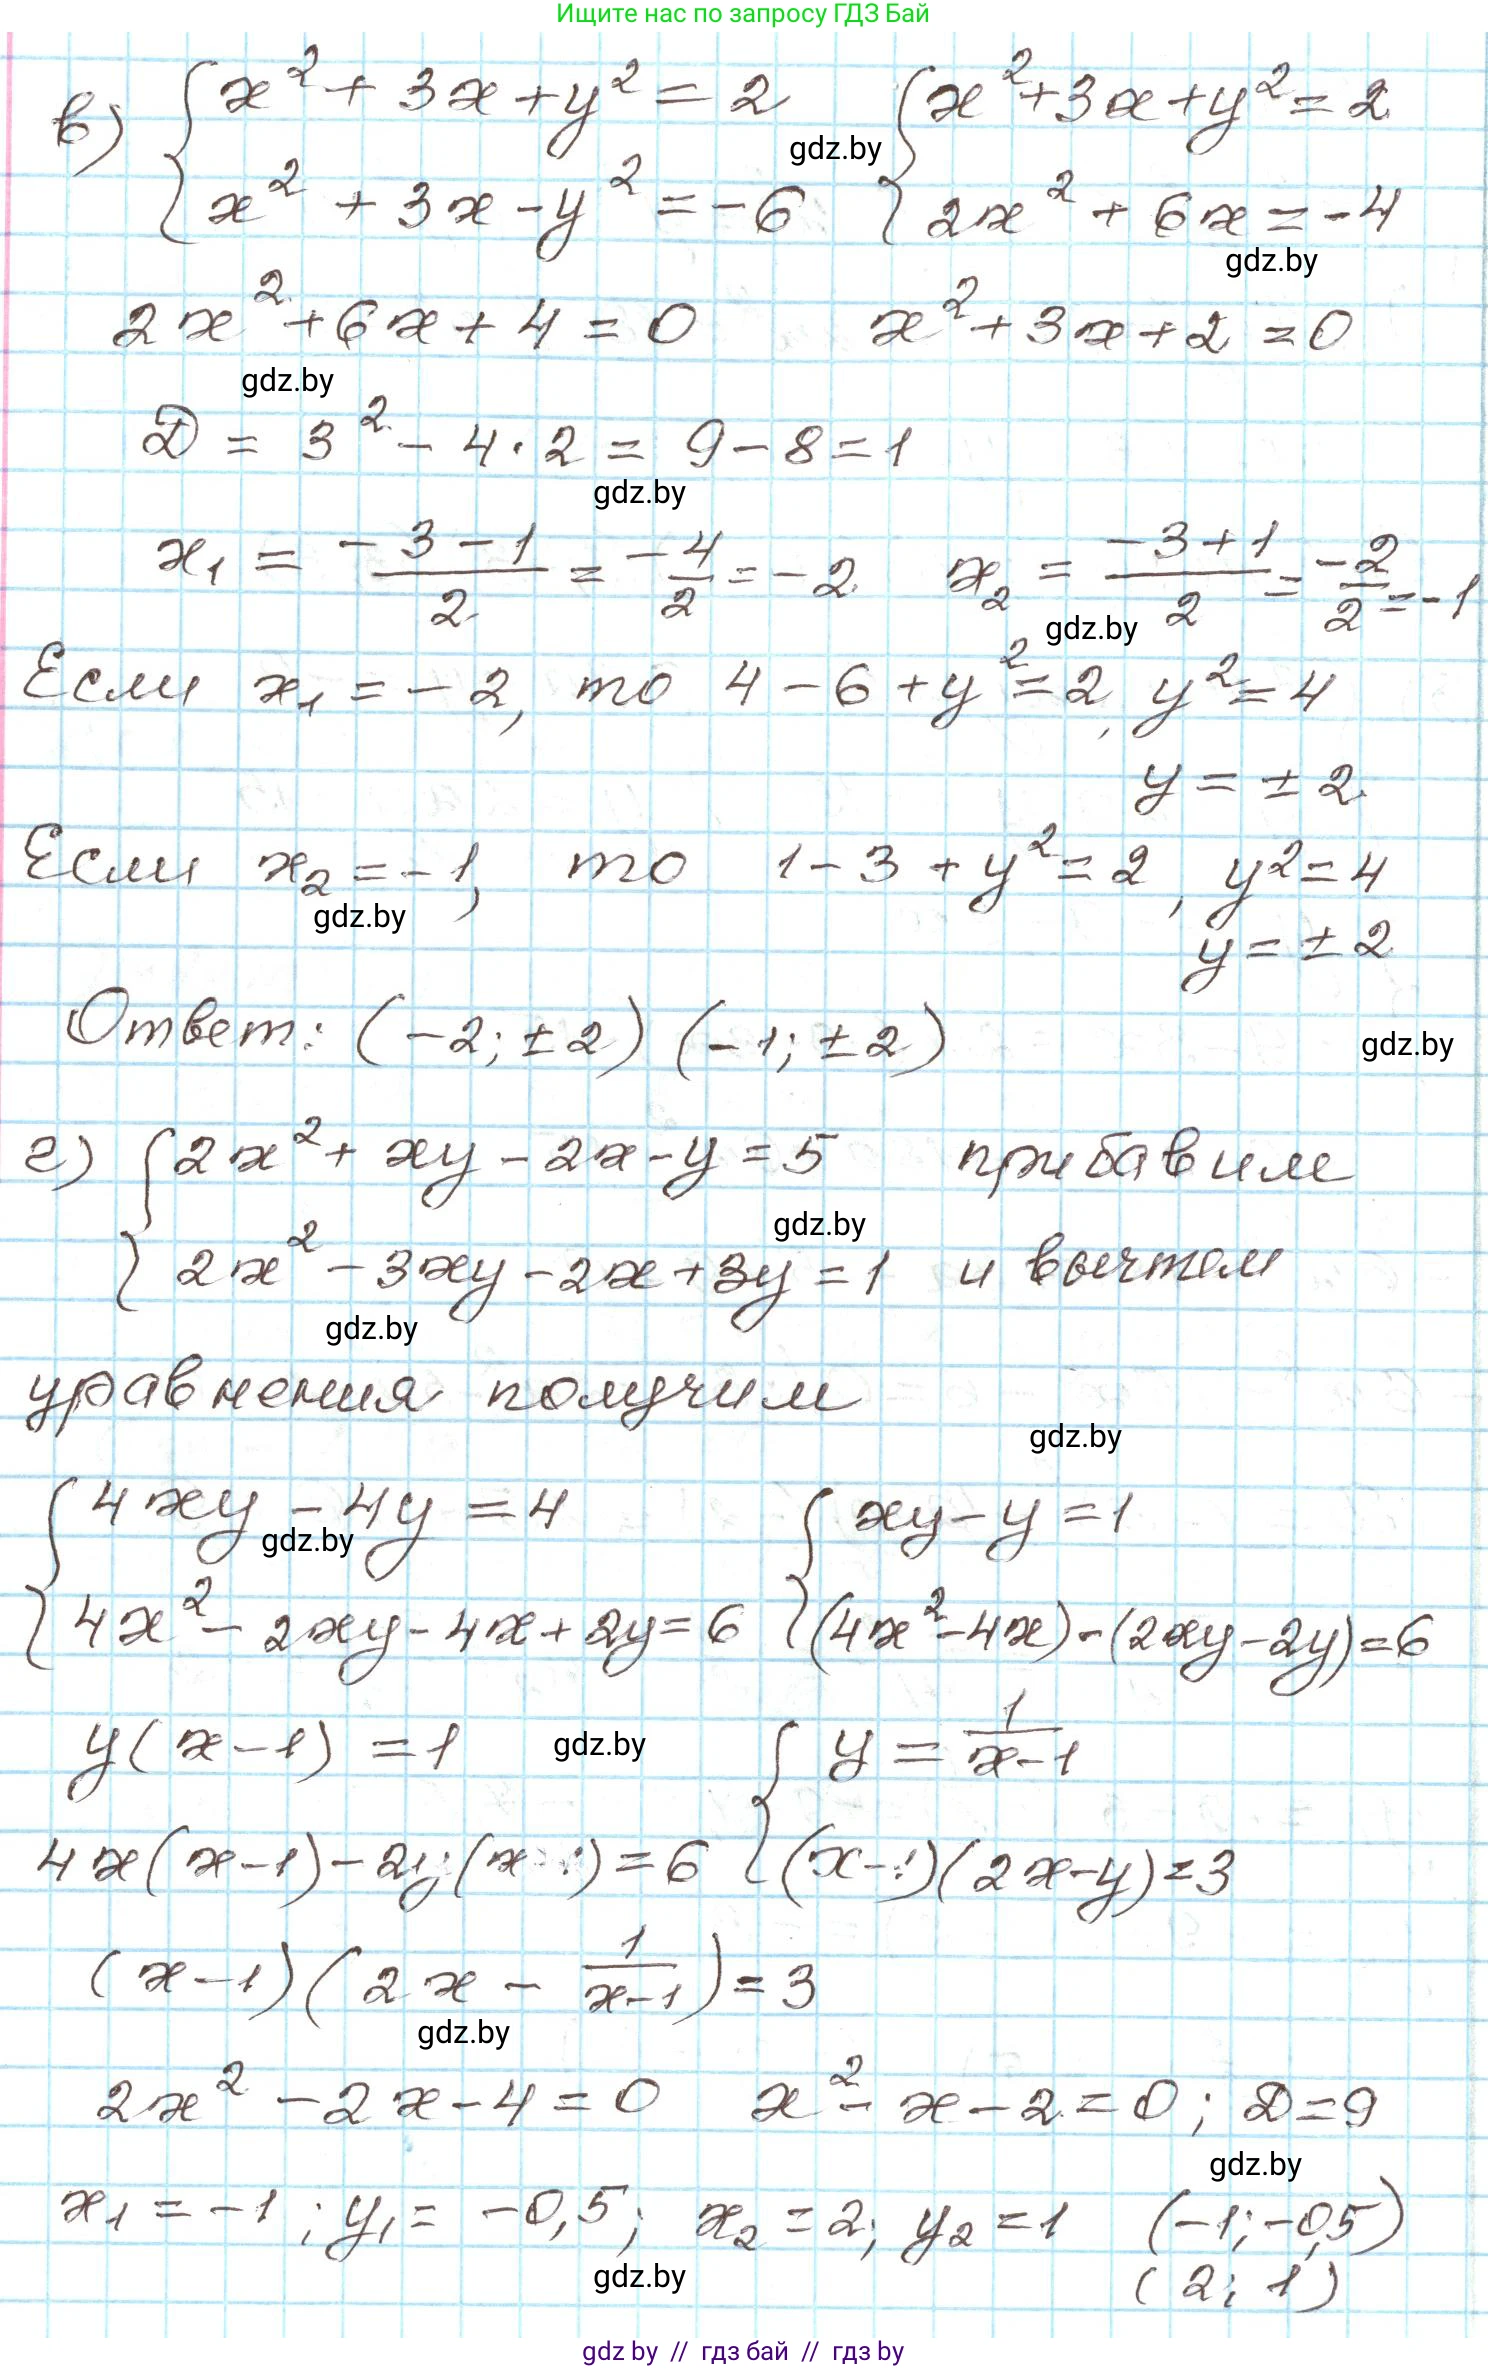 Ищите нас по запросу ГДЗ Бай
в) { x² + 3x + y² = 2   { x² + 3x + y² = 2
gdz.by
{ x² + 3x - y² = -6   { 2x² + 6x = -4
gdz.by
2x² + 6x + 4 = 0   x² + 3x + 2 = 0
gdz.by
D = 3² - 4·2 = 9 - 8 = 1
gdz.by
x₁ = (-3-1)/2 = -4/2 = -2   x₂ = (-3+1)/2 = -2/2 = -1
gdz.by
Если x₁ = -2, то 4 - 6 + y² = 2, y² = 4
y = ± 2
Если x₂ = -1, то 1 - 3 + y² = 2, y² = 4
gdz.by
y = ± 2
Ответ: (-2; ±2) (-1; ±2)
gdz.by
г) { 2x² + xy - 2x - y = 5   прибавим
gdz.by
{ 2x² - 3xy - 2x + 3y = 1   и вычтем
gdz.by
уравнения получим
gdz.by
{ 4xy - 4y = 4   { xy - y = 1
gdz.by
{ 4x² - 2xy - 4x + 2y = 6   { (4x² - 4x) - (2xy - 2y) = 6
y(x-1) = 1   { y = 1/(x-1)
gdz.by
4x(x-1) - 2y(x-1) = 6   { (x-1)(2x-y) = 3
(x-1)(2x - 1/(x-1)) = 3
gdz.by
2x² - 2x - 4 = 0   x² - x - 2 = 0; D = 9
gdz.by
x₁ = -1; y₁ = -0,5; x₂ = 2; y₂ = 1   (-1; -0,5)
gdz.by
(2; 1)
gdz by // гдз бай // гдз by